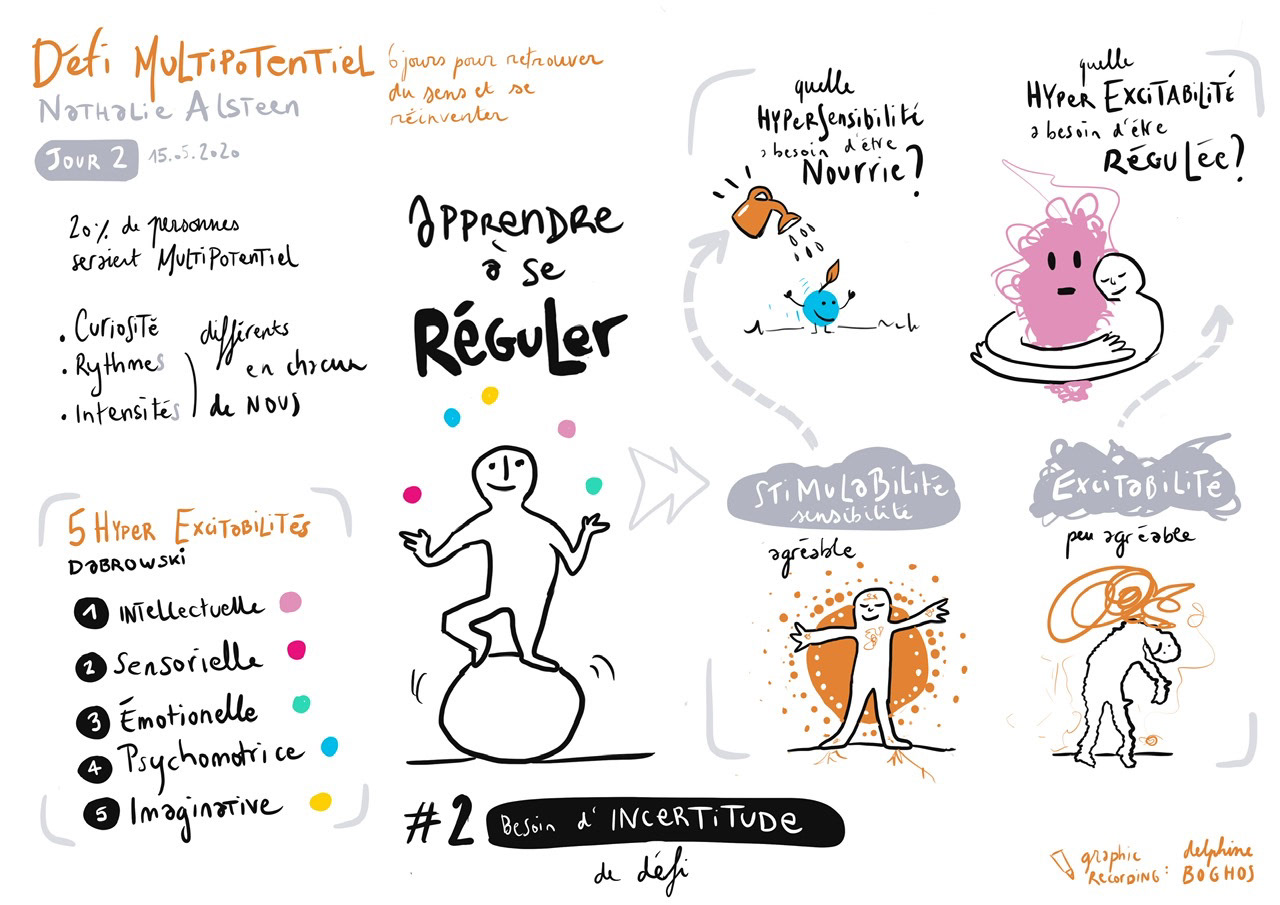 Défi MultiPotentiel
Nathalie Alsteen
Jour 2
15.05.2020
6 jours pour retrouver
du sens et se
réinventer
20% de personnes
seraient MultiPotentiel
. Curiosité
. Rythmes
. Intensités
différents
en chacun
de NOUS
5 Hyper Excitabilités
DABROWSKI
1 Intellectuelle
2 Sensorielle
3 Émotionelle
4 Psychomotrice
5 Imaginative
Apprendre
à se
RéGuLer
#2 Besoin d'INCERTITUDE
de défi
quelle
HYPerSensibilité
a besoin d'être
Nourrie?
quelle
HYPer ExciTABiLiTÉ
a besoin d'être
RÉGULÉe?
STiMuLaBiLité
sensibilité
agréable
Excitabilité
peu agréable
graphic
Recording:
delphine
BOGHOS